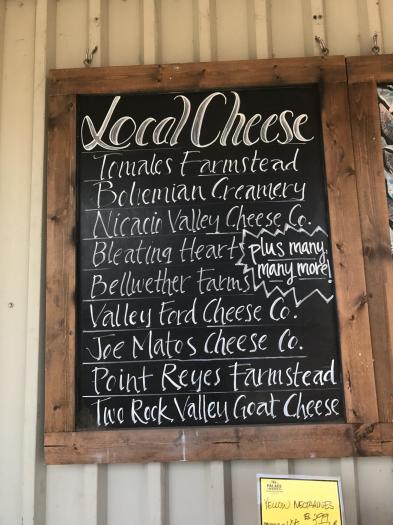 Local Cheese
Tomales Farmstead
Bohemian Creamery
Nicasio Valley Cheese Co.
Bleating Heart
plus many,
many more!
Bellwether Farms
Valley Ford Cheese Co.
Joe Matos Cheese Co.
Point Reyes Farmstead
Two Rock Valley Goat Cheese
PALACE
MARKET
YELLOW NECTARINES